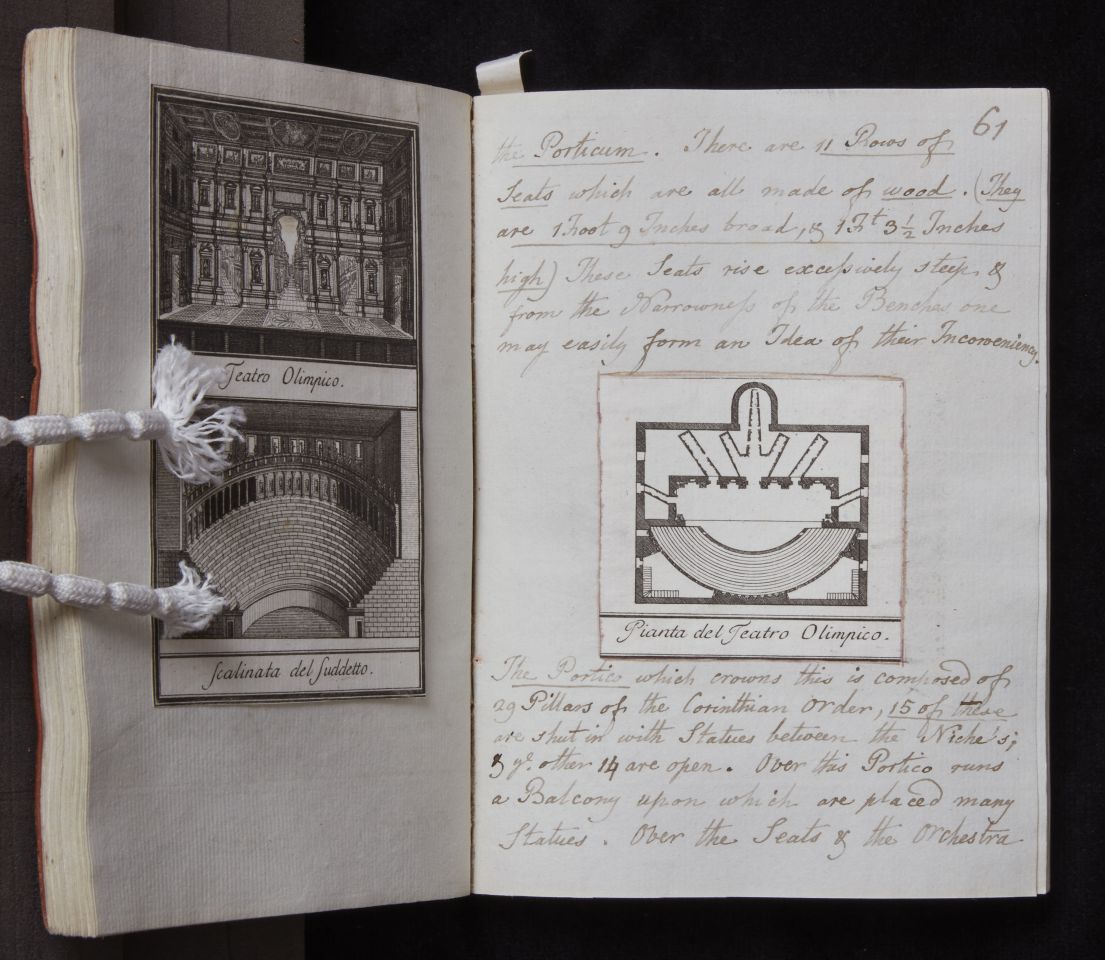 Teatro Olimpico.
Scalinata del Suddetto.
61
the Porticum. There are 11 Rows of
Seats which are all made of wood. (They
are 1 Foot 9 Inches broad, & 1 Ft 3 1/2 Inches
high) These Seats rise excessively steep &
from the Narrowness of the Benches one
may easily form an Idea of their Inconveniency.
Pianta del Teatro Olimpico.
The Portico which crowns this is composed of
29 Pillars of the Corinthian Order, 15 of these
are shut in with Statues between the Niche's;
& ye. other 14 are open. Over this Portico runs
a Balcony upon which are placed many
Statues. Over the Seats & the Orchestra